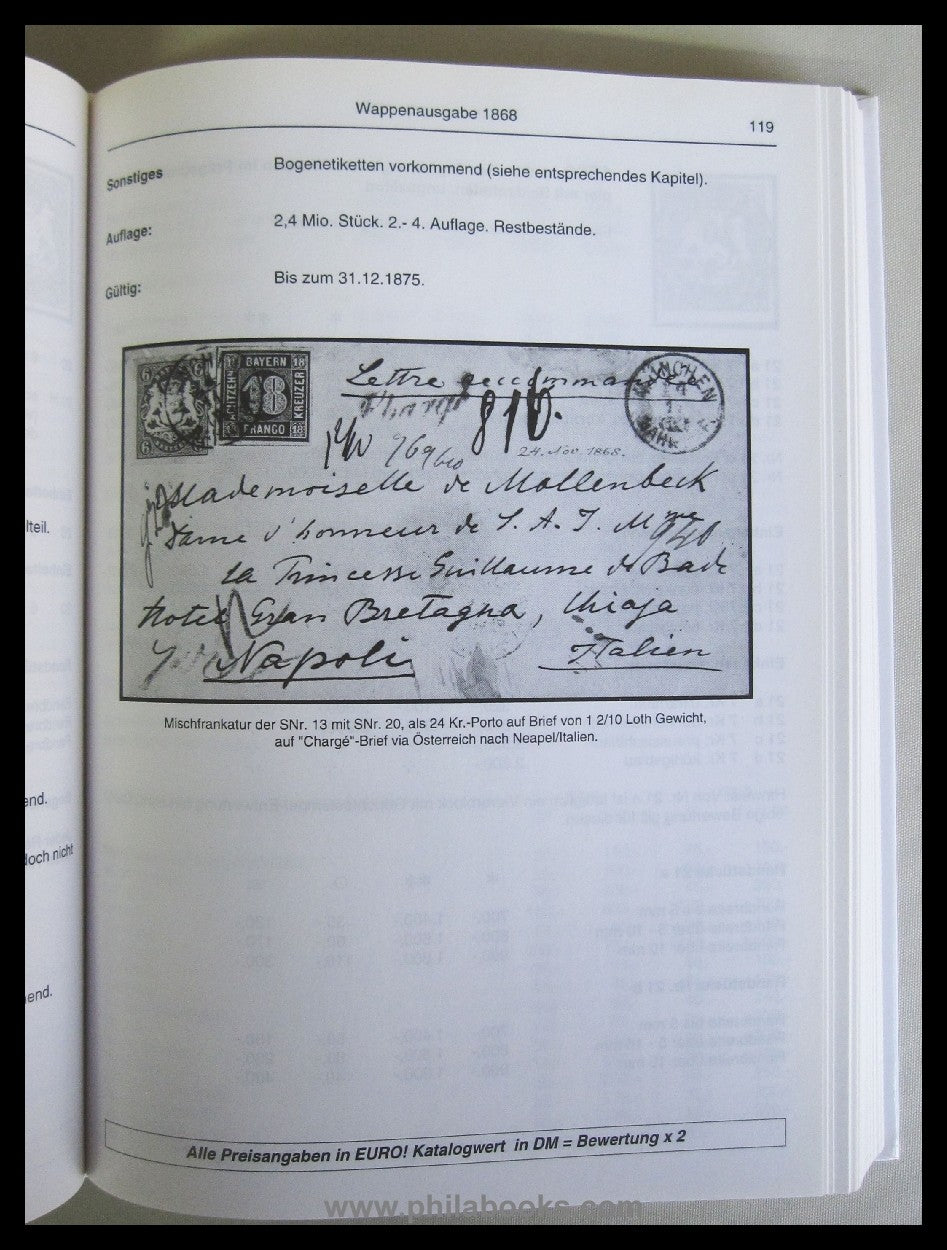 Wappenausgabe 1868
119
Sonstiges Bogenetiketten vorkommend (siehe entsprechendes Kapitel).
Auflage: 2,4 Mio. Stück. 2.- 4. Auflage. Restbestände.
Gültig: Bis zum 31.12.1875.
BAYERN 18
18
KREUZER
FRANCO 18
6
6
Lettre recommandée
Chargé
816.
MÜNCHEN
BAHN
24. Nov. 1868.
Mademoiselle de Mollenbeck
Dame d'honneur de S. A. I. Mme
940
La Princesse Guillaume de Bade
Hotel Gran Bretagna, Chiaja
Napoli Italien
Mischfrankatur der SNr. 13 mit SNr. 20, als 24 Kr.-Porto auf Brief von 1 2/10 Loth Gewicht,
auf "Chargé"-Brief via Österreich nach Neapel/Italien.
lteil.
end.
doch nicht
end.
Alle Preisangaben in EURO! Katalogwert in DM = Bewertung x 2
www.philabooks.com